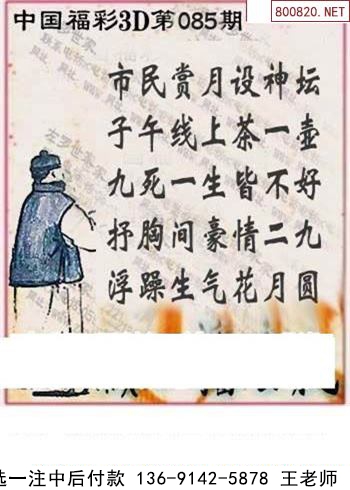 中国福彩3D第085期
800820.NET
市民赏月设神坛
子午线上茶一壶
九死一生皆不好
抒胸间豪情二九
浮躁生气花月圆
选一注中后付款 136-9142-5878 王老师